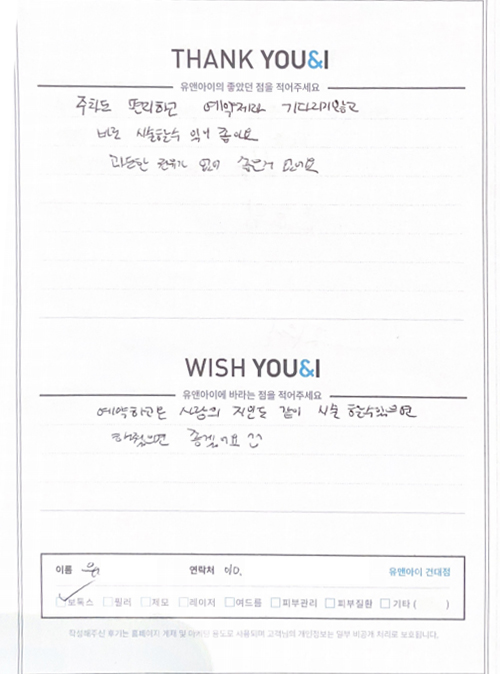 THANK YOU&I
유앤아이의 좋았던 점을 적어주세요
주차도 편리하고 예약제라 기다리지않고
바로 시술할수 있어 좋아요
과도한 권유가 없어 좋은거 같아요
WISH YOU&I
유앤아이에 바라는 점을 적어주세요
예약하고온 사람의 지인도 같이 시술 할수있으면
하셨으면 좋겠어요 ^^
이름 연락처 010. 유앤아이 건대점
보톡스 필러 제모 레이저 여드름 피부관리 피부질환 기타 ( )
작성해주신 후기는 홈페이지 게재 및 마케팅 용도로 사용되며 고객님의 개인정보는 일부 비공개 처리로 보호됩니다.